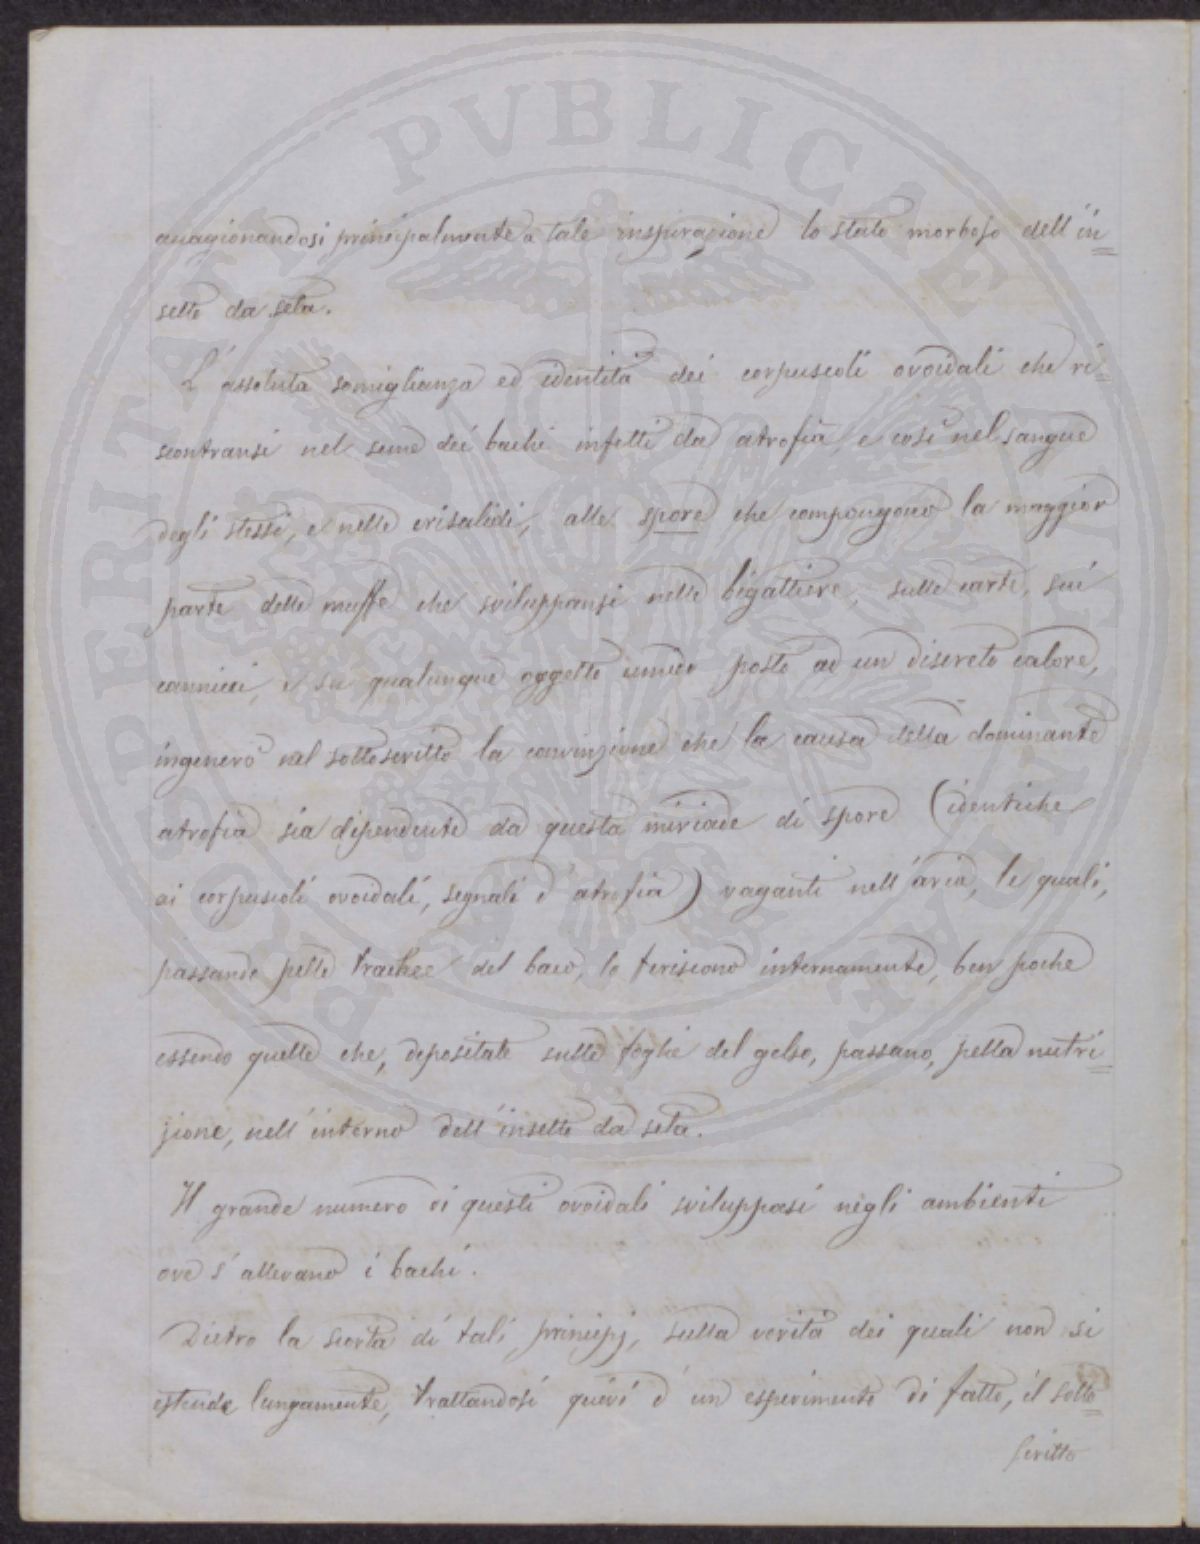 cagionandosi principalmente a tale inspirazione lo stato morboso dell'in=
setto da seta.
L'assoluta somiglianza ed identità dei corpuscoli ovoidali che ri=
scontransi nel seme dei bachi infetti da atrofia, e così nel sangue
degli stessi, e nelle crisalidi, alle spore che compongono la maggior
parte delle muffe che sviluppansi nelle bigattiere, sulle carte, sui
cannicci, e su qualunque oggetto umido posto ad un discreto calore,
ingenerò nel sottoscritto la convinzione che la causa della dominante
atrofia sia dipendente da questa miriade di spore (identiche
ai corpuscoli ovoidali, segnali d'atrofia) vaganti nell'aria, le quali,
passando pelle trachee del baco, lo feriscono internamente, ben poche
essendo quelle che, depositate sulle foglie del gelso, passano, pella nutri=
zione, nell'interno dell'insetto da seta.
Il grande numero di questi ovoidali sviluppasi negli ambienti
ove s'allevano i bachi.
Dietro la scorta di tali principj, sulla verità dei quali non si
estende lungamente, trattandosi quivi d'un esperimento di fatto, il sotto=
scritto
PROSPERITATI PVBLICAE